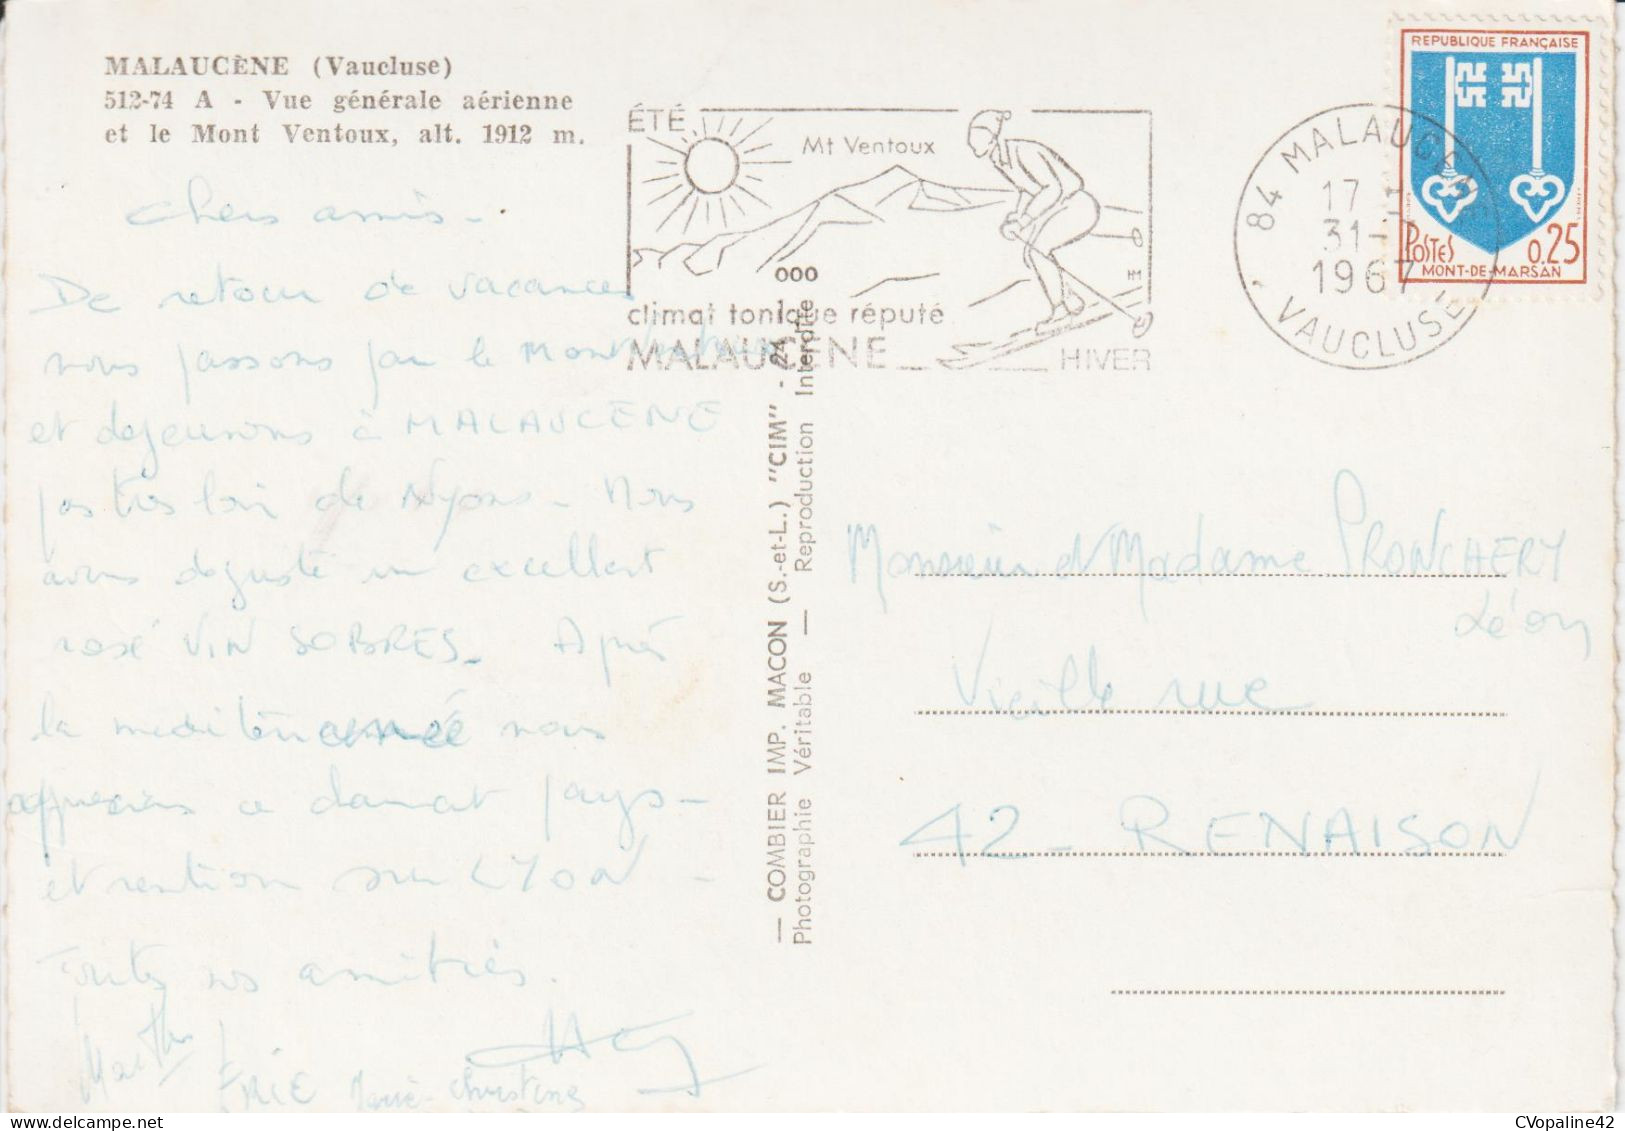 MALAUCÈNE (Vaucluse)
512-74 A - Vue générale aérienne
et le Mont Ventoux, alt. 1912 m.
ÉTÉ
Mt Ventoux
000
climat tonique réputé
MALAUCENE
HIVER
84 MALAUCENE
17 H
31-
1967
VAUCLUSE
REPUBLIQUE FRANÇAISE
POSTES
0.25
MONT-DE-MARSAN
Chers amis -
De retour de vacances
nous passons par le Mont Ventoux
et dejeunons à MALAUCENE
pas très loin de Nyons - Nous
avons degusté un excellent
rosé VIN SOBRES - Après
la mediterrannée nous
apprecions ce charmant pays -
et rentrons sur LYON -
Toutes nos amitiés.
ERIC Marie-Christine
— COMBIER IMP. MACON (S.-et-L.) "CIM" - 24
Photographie Véritable — Reproduction Interdite
Monsieur et Madame PRONCHERY
Léon
Vieille rue
42 - RENAISON
CVopaline42